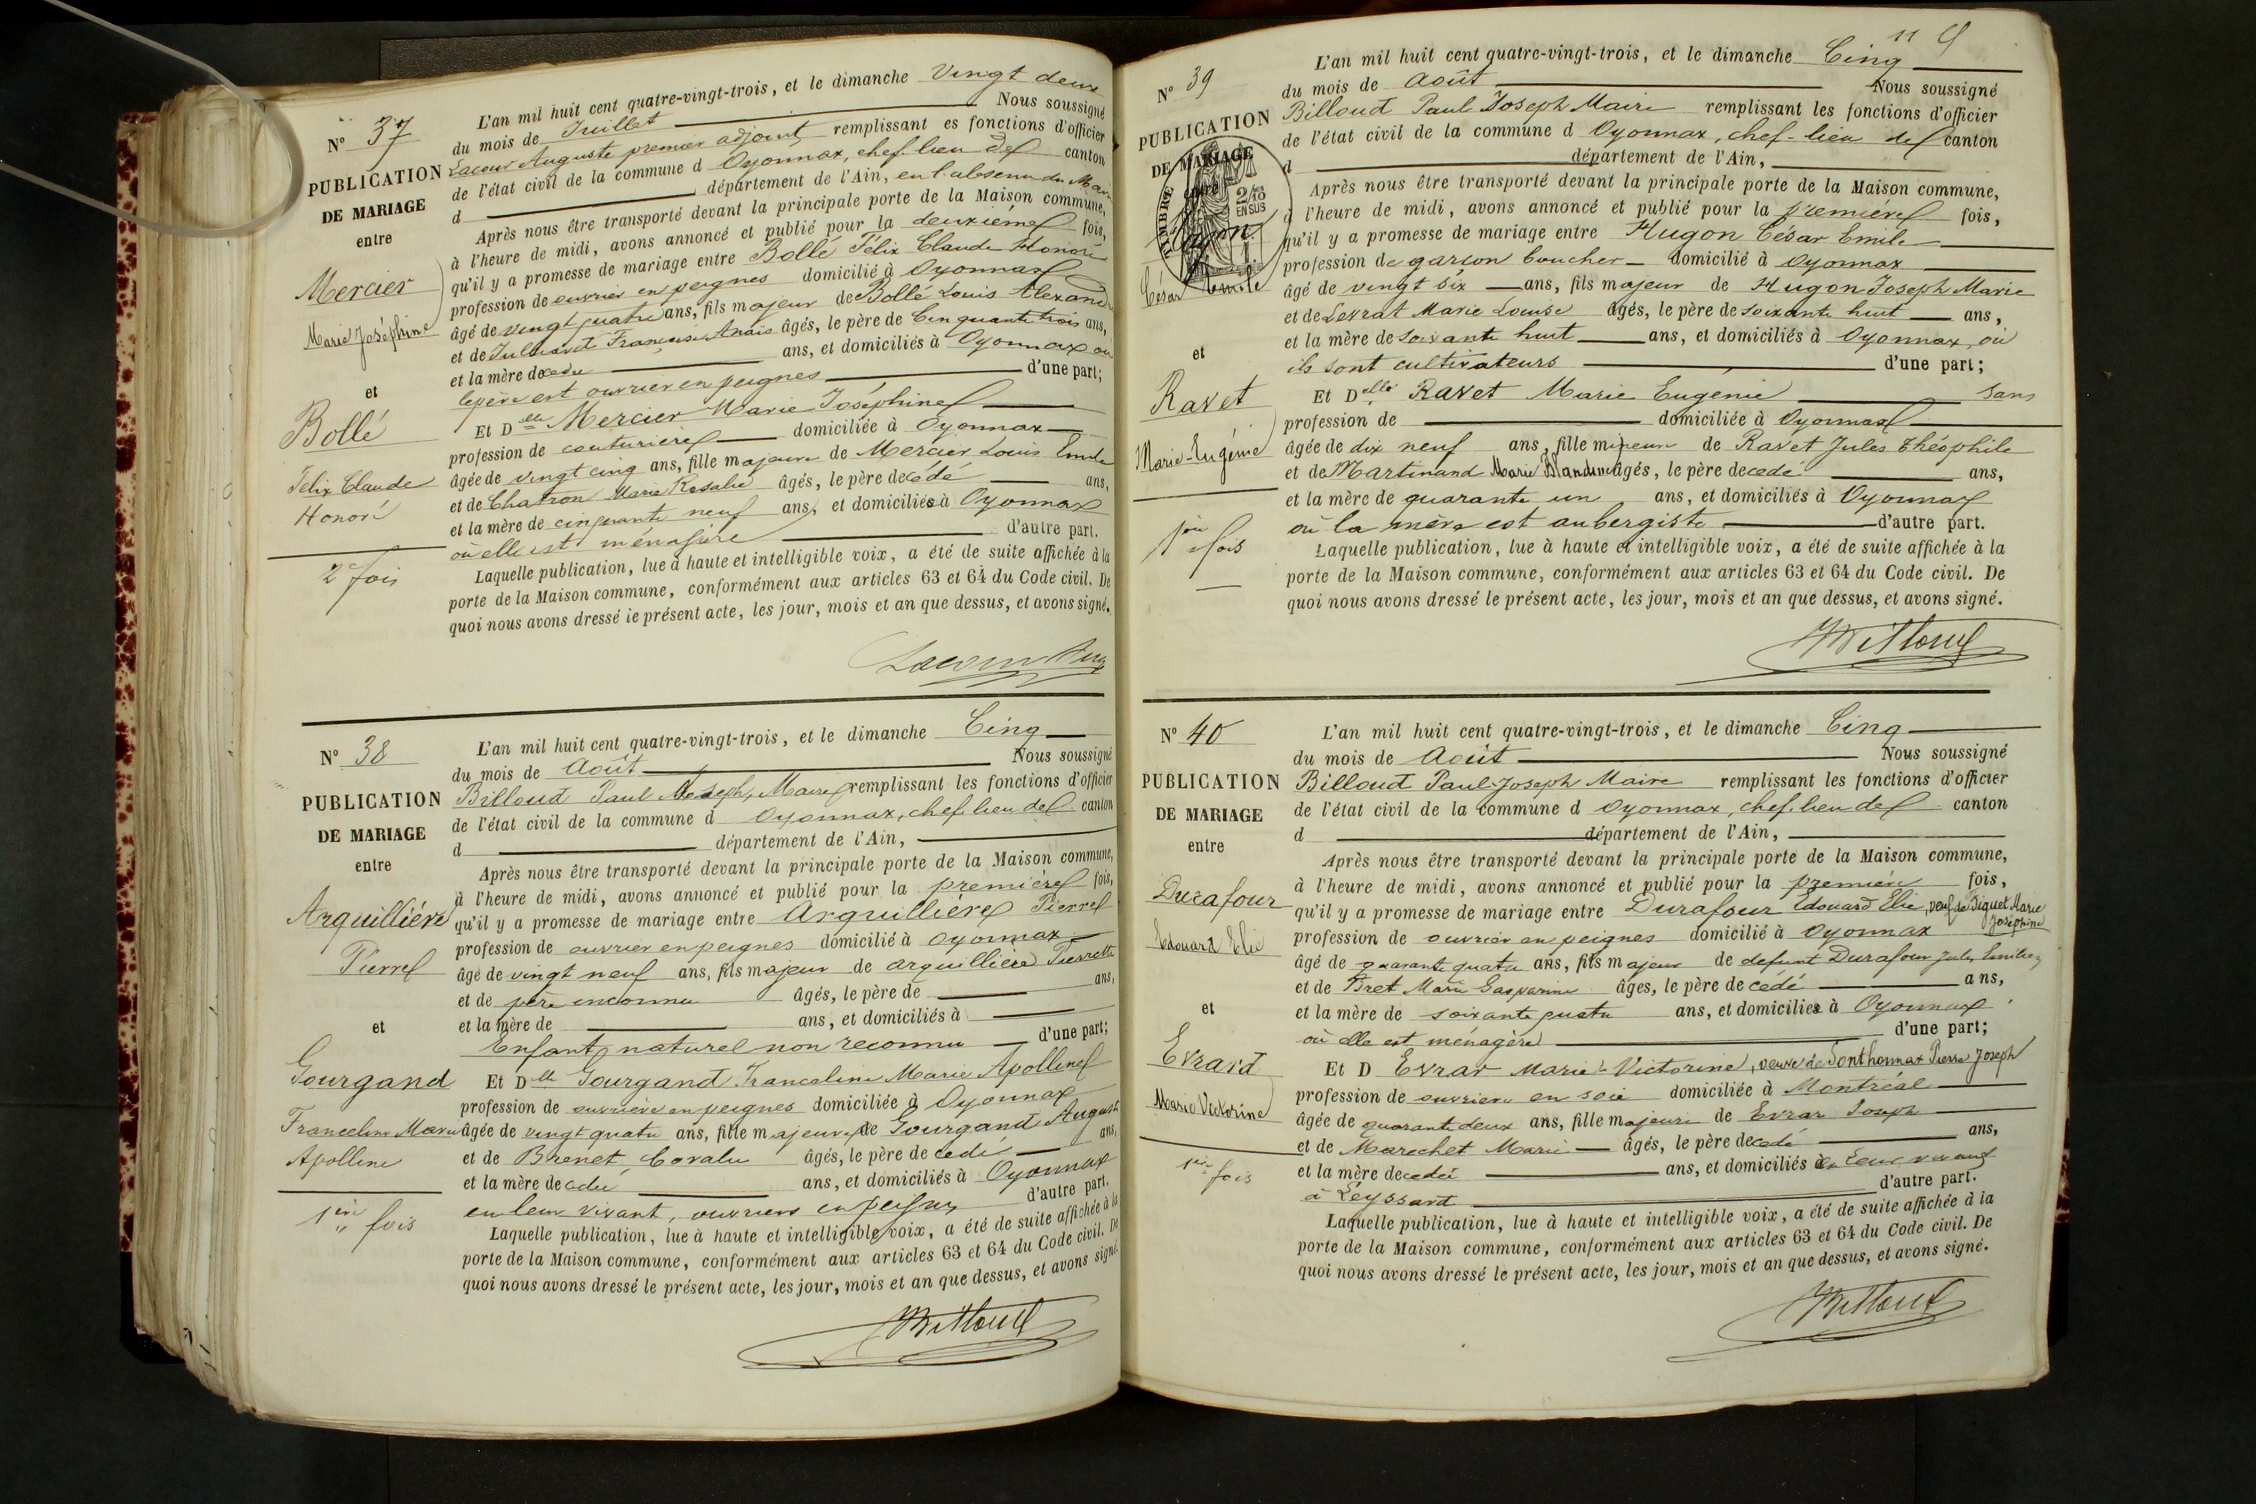 N° 37
PUBLICATION
DE MARIAGE
entre
Mercier
Marie Joséphine
et
Bollé
Félix Claude
Honoré
2e fois
L'an mil huit cent quatre-vingt-trois, et le dimanche Vingt deux
du mois de Juillet Nous soussigné
Lacour Auguste premier adjoint remplissant es fonctions d'officier
de l'état civil de la commune d Oyonnax, chef-lieu de canton
d département de l'Ain, en l'absence du Maire
Après nous être transporté devant la principale porte de la Maison commune,
à l'heure de midi, avons annoncé et publié pour la deuxième fois,
qu'il y a promesse de mariage entre Bollé Félix Claude Honoré
profession de ouvrier en peignes domicilié à Oyonnax
âgé de vingt quatre ans, fils majeur de Bollé Louis Alexandre
et de Françoise Anaïs âgés, le père de Cinquante trois ans,
et la mère décédée ans, et domiciliés à Oyonnax où
le père est ouvrier en peignes d'une part;
Et Dlle Mercier Marie Joséphine
profession de couturière domiciliée à Oyonnax
âgée de vingt cinq ans, fille majeure de Mercier Louis Emile
et de Chatron Marie Rosalie âgés, le père decédé ans,
et la mère de cinquante neuf ans, et domiciliés à Oyonnax
où elle est ménagère d'autre part.
Laquelle publication, lue à haute et intelligible voix, a été de suite affichée à la
porte de la Maison commune, conformément aux articles 63 et 64 du Code civil. De
quoi nous avons dressé le présent acte, les jour, mois et an que dessus, et avons signé.
Lacour Aug
N° 38
PUBLICATION
DE MARIAGE
entre
Arquillière
Pierre
et
Gourgand
Franceline Marie
Apolline
1ère fois
L'an mil huit cent quatre-vingt-trois, et le dimanche Cinq
du mois de Août Nous soussigné
Billoud Paul Joseph, Maire remplissant les fonctions d'officier
de l'état civil de la commune d Oyonnax, chef-lieu de canton
d département de l'Ain,
Après nous être transporté devant la principale porte de la Maison commune,
à l'heure de midi, avons annoncé et publié pour la première fois,
qu'il y a promesse de mariage entre Arquillière Pierre
profession de ouvrier en peignes domicilié à Oyonnax
âgé de vingt neuf ans, fils majeur de Arquillière Pierrette
et de père inconnu âgés, le père de ans,
et la mère de ans, et domiciliés à
Enfant naturel non reconnu d'une part;
Et Dlle Gourgand Franceline Marie Apolline
profession de ouvrière en peignes domiciliée à Oyonnax
âgée de vingt quatre ans, fille majeure de Gourgand Auguste
et de Brenet Coralie âgés, le père de cédé ans,
et la mère de cédée ans, et domiciliés à Oyonnax
en leur vivant, ouvriers en peignes d'autre part.
Laquelle publication, lue à haute et intelligible voix, a été de suite affichée à la
porte de la Maison commune, conformément aux articles 63 et 64 du Code civil. De
quoi nous avons dressé le présent acte, les jour, mois et an que dessus, et avons signé.
Billoud
11
N° 39
PUBLICATION
DE MARIAGE
entre
TIMBRE
2/10
EN SUS
Hugon
César Emile
et
Ravet
Marie-Eugénie
1ère fois
L'an mil huit cent quatre-vingt-trois, et le dimanche Cinq
du mois de Août Nous soussigné
Billoud Paul Joseph Maire remplissant les fonctions d'officier
de l'état civil de la commune d Oyonnax, chef-lieu de canton
d département de l'Ain,
Après nous être transporté devant la principale porte de la Maison commune,
à l'heure de midi, avons annoncé et publié pour la première fois,
qu'il y a promesse de mariage entre Hugon César Emile
profession de garçon boucher domicilié à Oyonnax
âgé de vingt six ans, fils majeur de Hugon Joseph Marie
et de Levrat Marie Louise âgés, le père de soixante huit ans,
et la mère de soixante huit ans, et domiciliés à Oyonnax, où
ils sont cultivateurs d'une part;
Et Delle Ravet Marie Eugénie sans
profession de domiciliée à Oyonnax
âgée de dix neuf ans, fille mineure de Ravet Jules Théophile
et de Martinand Marie Blandine âgés, le père decédé ans,
et la mère de quarante un ans, et domiciliés à Oyonnax
où la mère est aubergiste d'autre part.
Laquelle publication, lue à haute et intelligible voix, a été de suite affichée à la
porte de la Maison commune, conformément aux articles 63 et 64 du Code civil. De
quoi nous avons dressé le présent acte, les jour, mois et an que dessus, et avons signé.
Billoud
N° 40
PUBLICATION
DE MARIAGE
entre
Durafour
Edouard Elie
et
Evrard
Marie Victorine
1ère fois
L'an mil huit cent quatre-vingt-trois, et le dimanche Cinq
du mois de Août Nous soussigné
Billoud Paul-Joseph Maire remplissant les fonctions d'officier
de l'état civil de la commune d Oyonnax, chef-lieu de canton
d département de l'Ain,
Après nous être transporté devant la principale porte de la Maison commune,
à l'heure de midi, avons annoncé et publié pour la première fois,
qu'il y a promesse de mariage entre Durafour Edouard Elie, veuf de Piguet Marie
Joséphine
profession de ouvrier en peignes domicilié à Oyonnax
âgé de quarante quatre ans, fils majeur de defunt Durafour Jules Emilien
et de Bret Marie Gasparine âgés, le père de cédé ans,
et la mère de soixante quatre ans, et domiciliés à Oyonnax
où elle est ménagère d'une part;
Et D Evrar Marie-Victorine, veuve de Sonthonnax Pierre Joseph
profession de ouvrière en soie domiciliée à Montréal
âgée de quarante deux ans, fille majeure de Evrar Joseph
et de Marechet Marie âgés, le père decédé ans,
et la mère decedée ans, et domiciliés en leur vivant
à Leyssard d'autre part.
Laquelle publication, lue à haute et intelligible voix, a été de suite affichée à la
porte de la Maison commune, conformément aux articles 63 et 64 du Code civil. De
quoi nous avons dressé le présent acte, les jour, mois et an que dessus, et avons signé.
Billoud